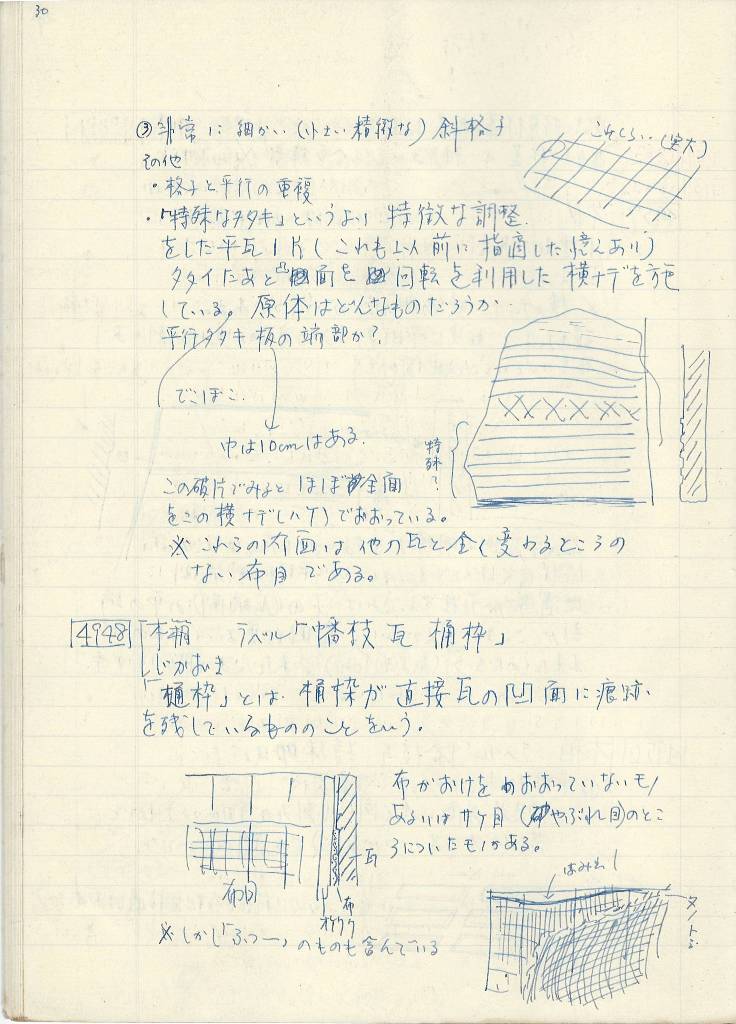 30
③非常に細かい(小さい精緻な)斜格子
これくらい(実大)
その他
・格子と平行の重複
・「特殊なタタキ」というより特徴な調整
をした平瓦1片(これも以前に指摘した憶えあり)
タタイたあと凸面を回転を利用した横ナデを施
している。原体はどんなものだろうか
平行タタキ板の端部か?
でこぼこ.
巾は10cmはある.
特殊?
この破片でみるとほぼ全面
をこの横ナデ(ハケ)でおおっている。
※これらの凹面は他の瓦と全く変わるところの
ない布目である。
4948 木箱 ラベル「幡枝瓦 桶枠」
じかおき
「樋枠」とは、桶枠が直接瓦の凹面に痕跡
を残しているもののことをいう。
布がおけをおおっていないモノ
あるいはサケ目(やぶれ目)のとこ
ろについたモノがある。
瓦
布目
布
オケワク
はみ出し
ヌノトジ
※しかし「ふつー」のものも含んでいる